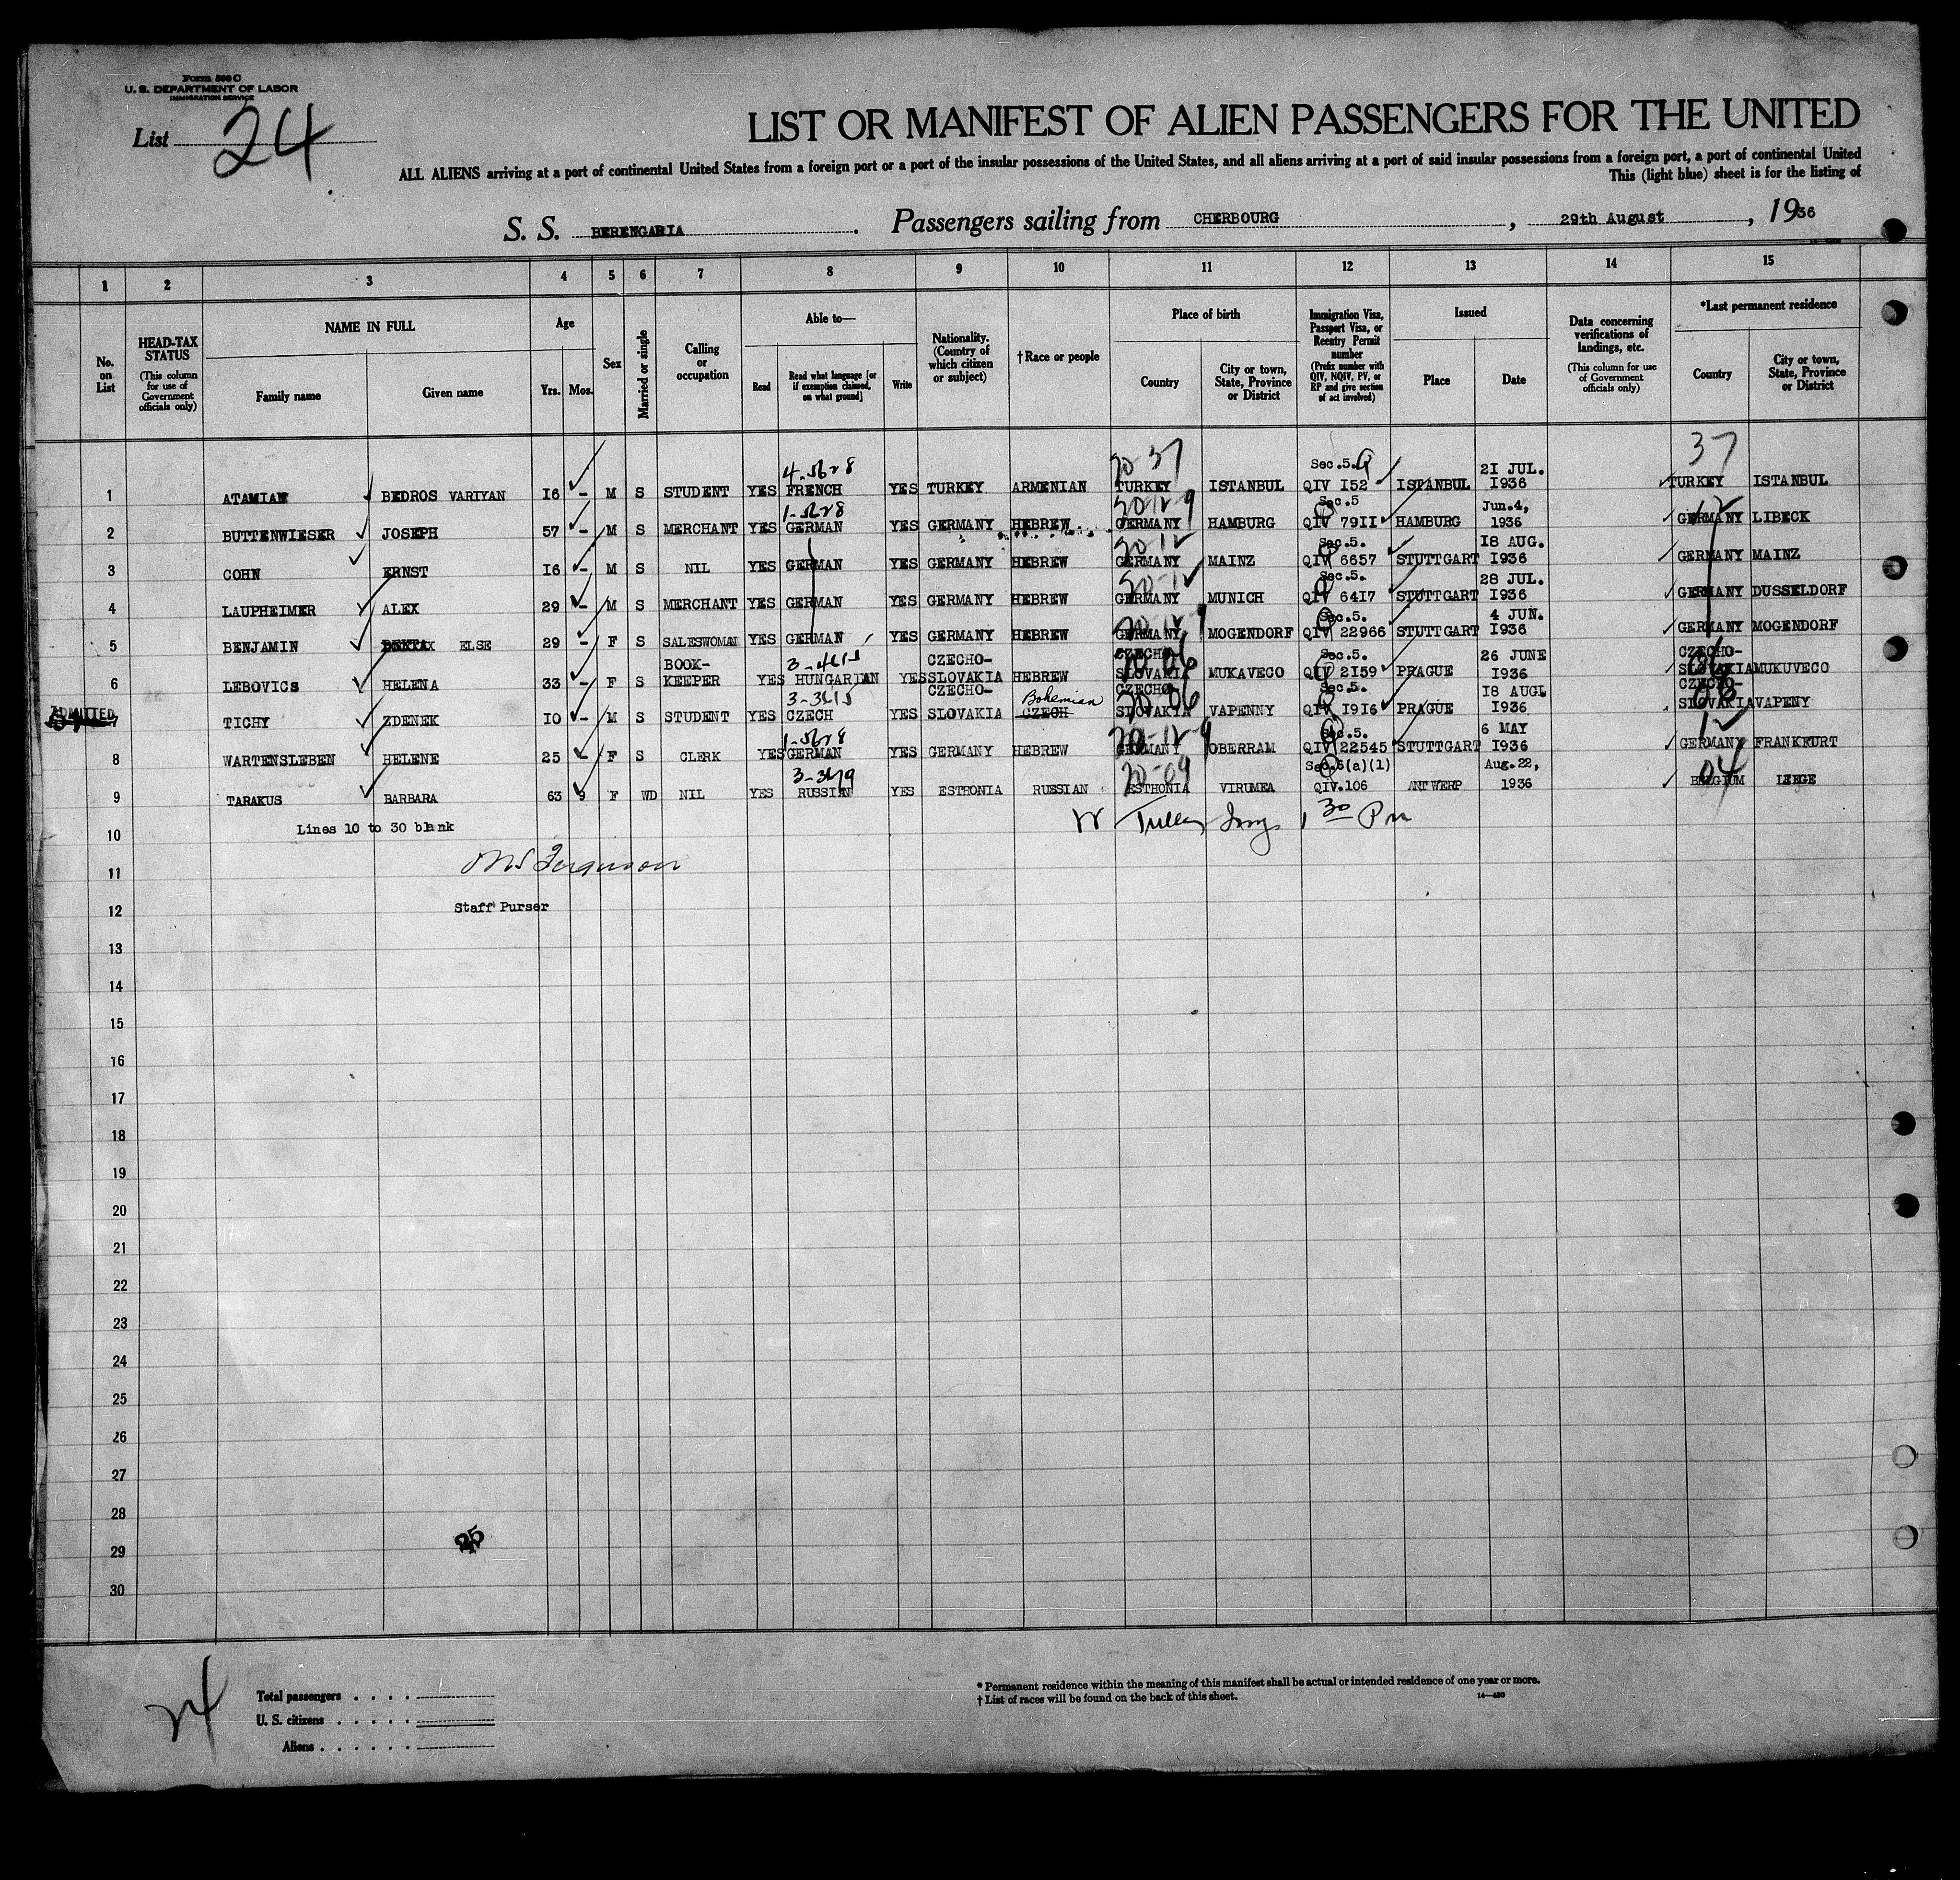 Form 500 C
U. S. DEPARTMENT OF LABOR
IMMIGRATION SERVICE
List 24
LIST OR MANIFEST OF ALIEN PASSENGERS FOR THE UNITED
ALL ALIENS arriving at a port of continental United States from a foreign port or a port of the insular possessions of the United States, and all aliens arriving at a port of said insular possessions from a foreign port, a port of continental United
This (light blue) sheet is for the listing of
S. S. BERENGARIA. Passengers sailing from CHERBOURG, 29th August, 1936
1 2 3 4 5 6 7 8 9 10 11 12 13 14 15
No. on List
HEAD-TAX STATUS (This column for use of Government officials only)
NAME IN FULL
Family name
Given name
Age
Yrs. Mos.
Sex
Married or single
Calling or occupation
Able to—
Read
Read what language [or if exemption claimed, on what ground]
Write
Nationality. (Country of which citizen or subject)
†Race or people
Place of birth
Country
City or town, State, Province or District
Immigration Visa, Passport Visa, or Reentry Permit number (Prefix number with QIV, NQIV, PV, or RP and give section of act involved)
Issued
Place
Date
Data concerning verifications of landings, etc. (This column for use of Government officials only)
*Last permanent residence
Country
City or town, State, Province or District
1 ATAMIAN BEDROS VARIYAN I6 - M S STUDENT YES FRENCH YES TURKEY ARMENIAN TURKEY ISTANBUL Sec.5. QIV I52 ISTANBUL 2I JUL. I936 TURKEY ISTANBUL
2 BUTTENWIESER JOSEPH 57 - M S MERCHANT YES GERMAN YES GERMANY HEBREW GERMANY HAMBURG Sec.5 QIV 79II HAMBURG Jun.4, 1936 GERMANY LIBECK
3 COHN ERNST I6 - M S NIL YES GERMAN YES GERMANY HEBREW GERMANY MAINZ Sec.5. QIV 6657 STUTTGART I8 AUG. I936 GERMANY MAINZ
4 LAUPHEIMER ALEX 29 - M S MERCHANT YES GERMAN YES GERMANY HEBREW GERMANY MUNICH Sec.5. QIV 64I7 STUTTGART 28 JUL. I936 GERMANY DUSSELDORF
5 BENJAMIN ELSE 29 - F S SALESWOMAN YES GERMAN YES GERMANY HEBREW GERMANY MOGENDORF Sec.5. QIV 22966 STUTTGART 4 JUN. I936 GERMANY MOGENDORF
6 LEBOVICS HELENA 33 - F S BOOK-KEEPER YES HUNGARIAN YES CZECHO-SLOVAKIA HEBREW CZECHO-SLOVAKIA MUKAVECO Sec.5. QIV 2I59 PRAGUE 26 JUNE I936 CZECHO-SLOVAKIA MUKUVECO
ADMITTED
7 TICHY ZDENEK IO - M S STUDENT YES CZECH YES CZECHO-SLOVAKIA CZECH Bohemian CZECHO-SLOVAKIA VAPENNY Sec.5. QIV I9I6 PRAGUE I8 AUGL I936 CZECHO-SLOVAKIA VAPENY
8 WARTENSLEBEN HELENE 25 - F S CLERK YES GERMAN YES GERMANY HEBREW GERMANY OBERRAM Sec.5. QIV 22545 STUTTGART 6 MAY I936 GERMANY FRANKFURT
9 TARAKUS BARBARA 63 9 F WD NIL YES RUSSIAN YES ESTHONIA RUSSIAN ESTHONIA VIRUMEA Sec.6(a)(1) QIV.106 ANTWERP Aug.22, 1936 BELGIUM LIEGE
10 Lines 10 to 30 blank
11 Ferguson
12 Staff Purser
13
14
15
16
17
18
19
20
21
22
23
24
25
26
27
28
29
30
24
Total passengers
U. S. citizens
Aliens
* Permanent residence within the meaning of this manifest shall be actual or intended residence of one year or more.
† List of races will be found on the back of this sheet.